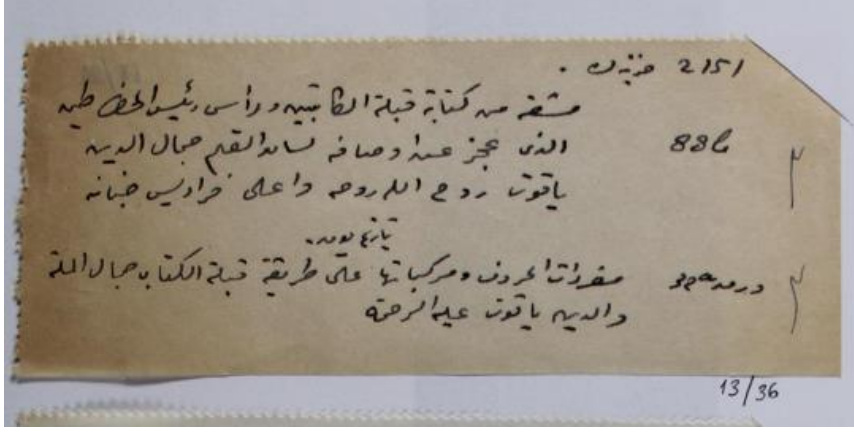 2151 خزينه .
مشقه من كتابة قبلة الكاتبين ورأس رئيس الخطاطين
88b الذى عجز عن اوصافه لسان القلم جمال الدين
ياقوت روح الله روحه واعلى فراديس جنانه
مفردات الحروف ومركباتها على طريقة قبلة الكتاب جمال الملة
والدين ياقوت عليه الرحمة
13/36